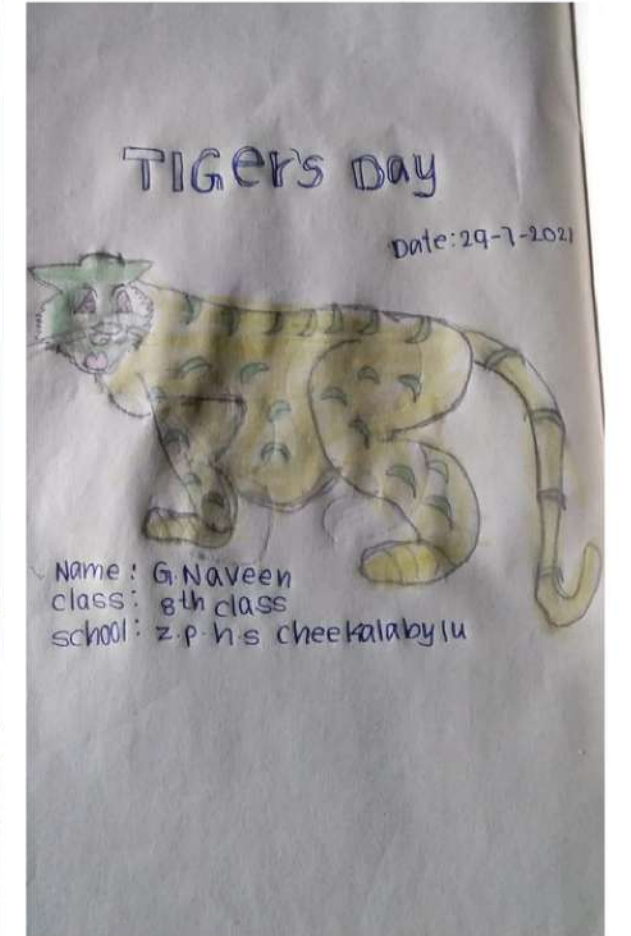 TIGer's Day
Date:29-7-2021
Name: G.Naveen
class: 8th class
school: z.p.h.s cheekalabylu